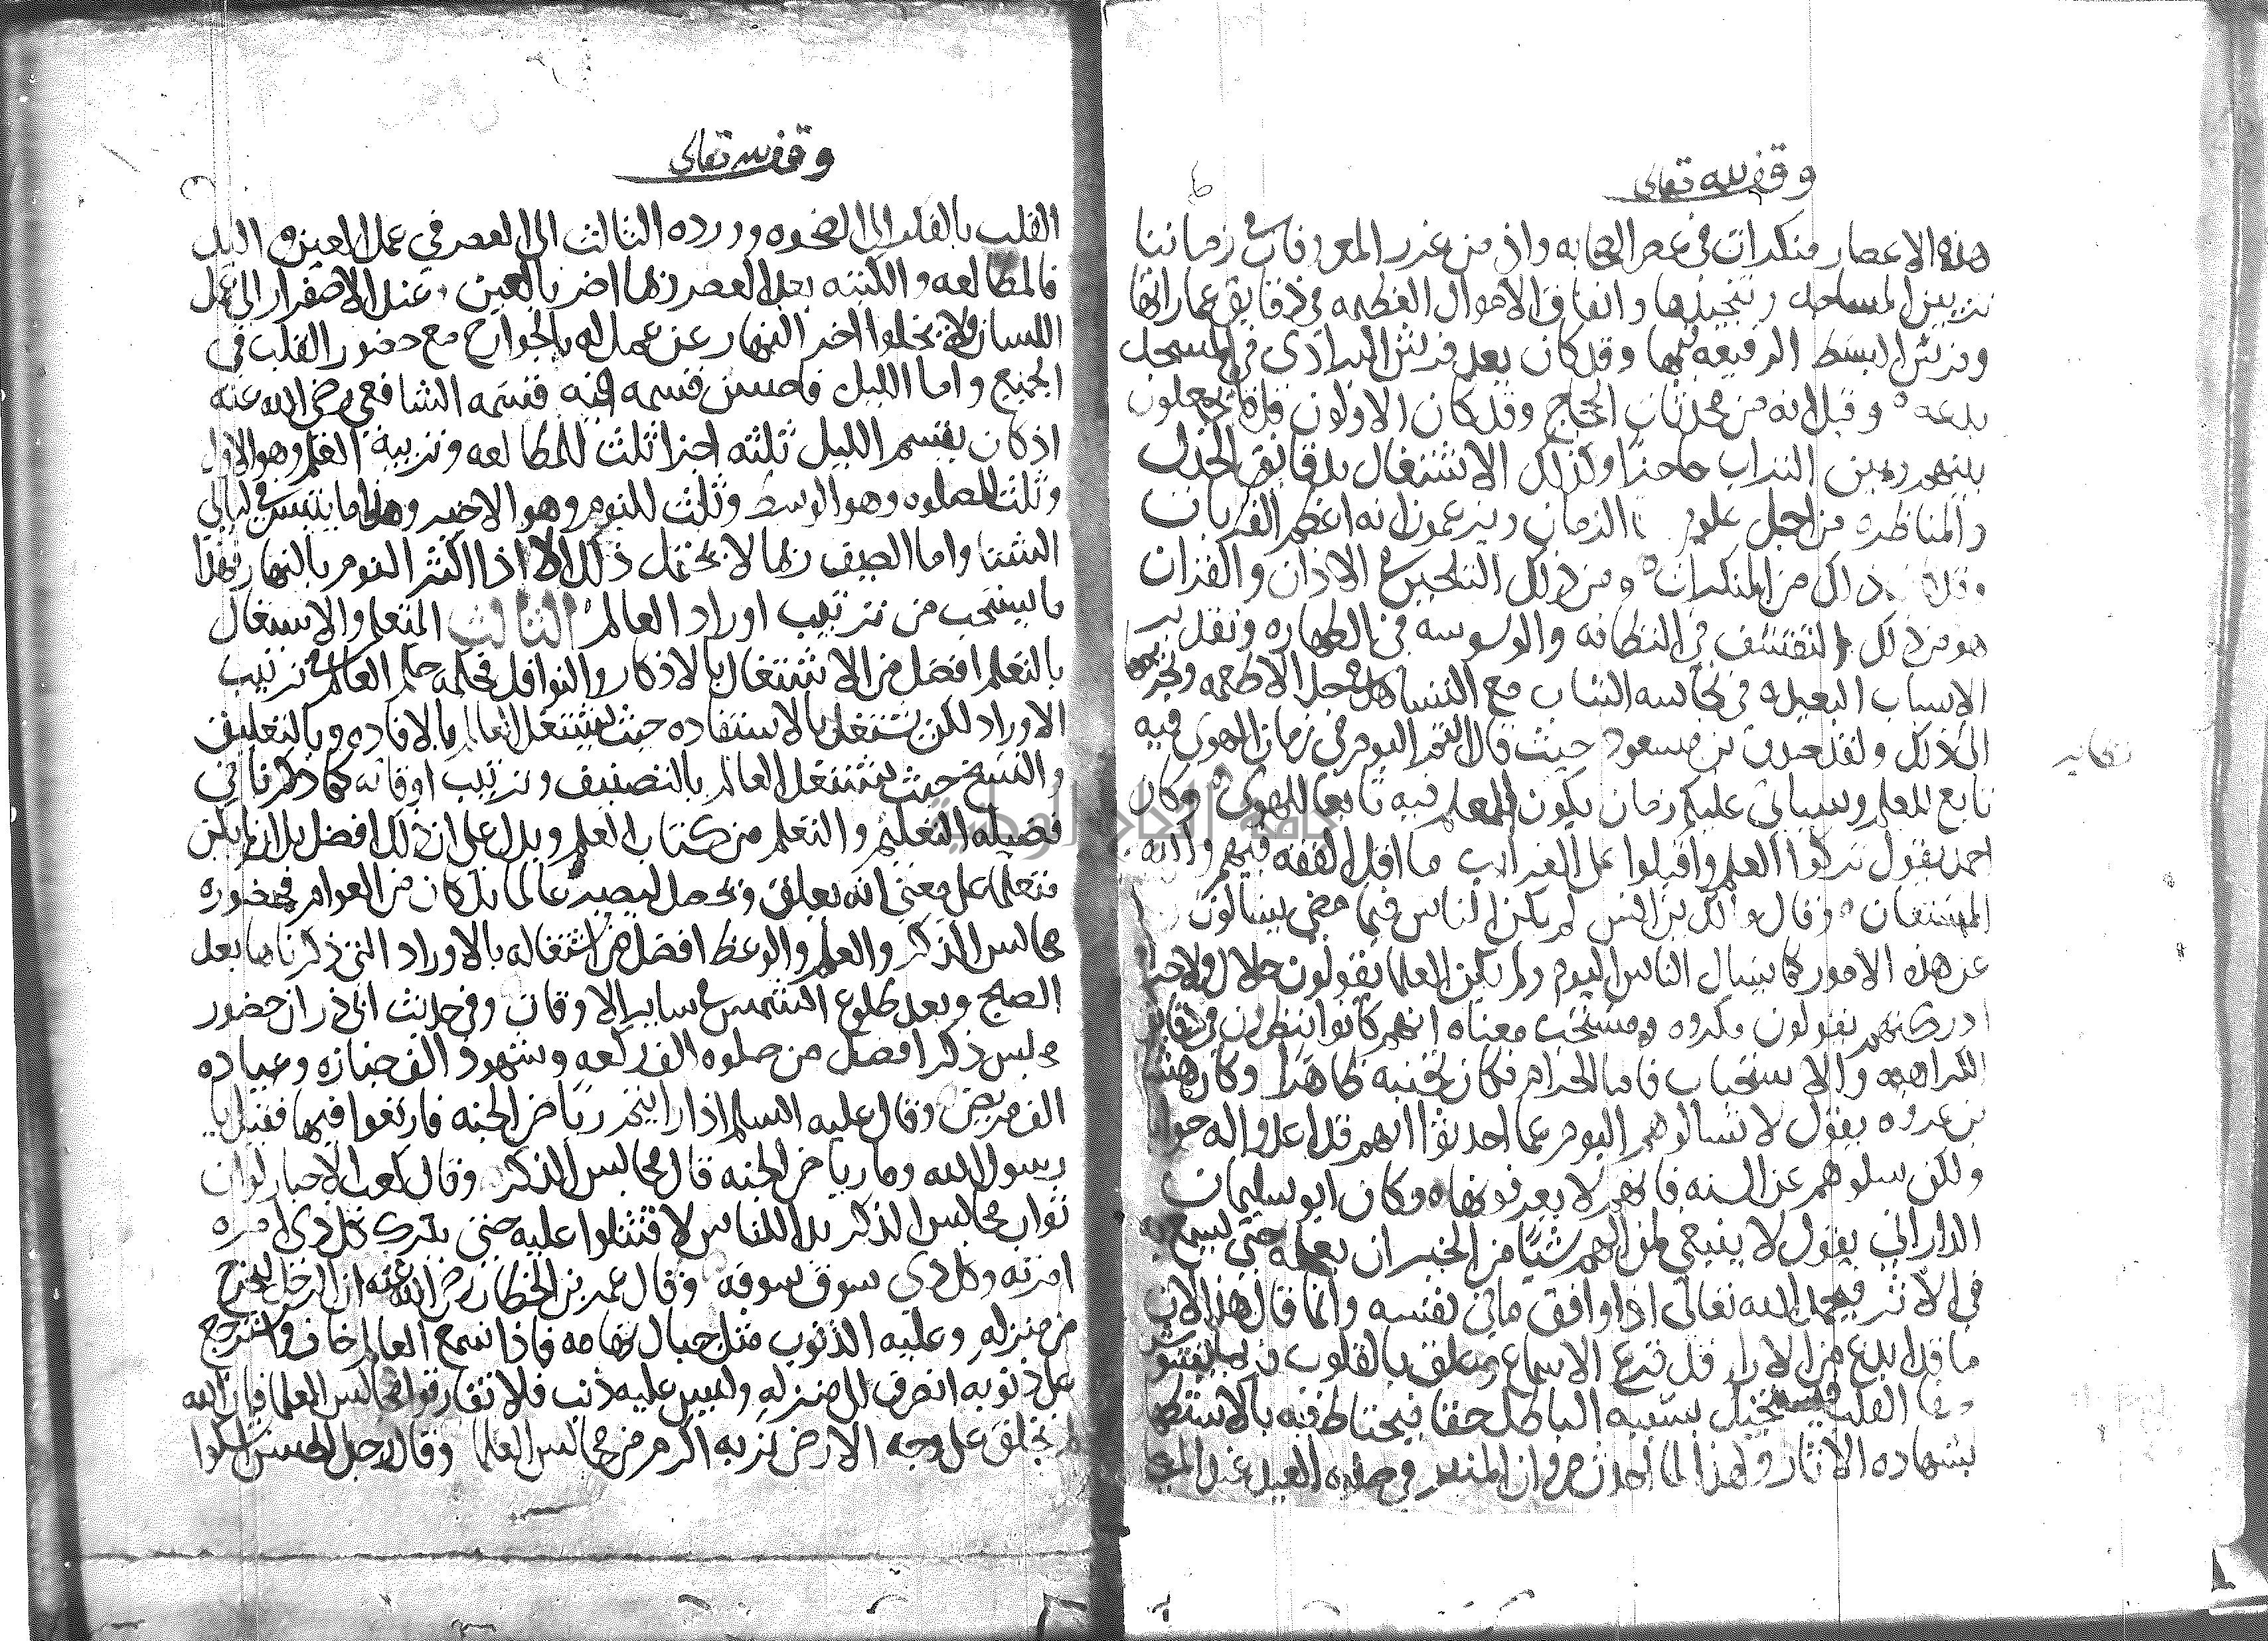 وقف لله تعالى
هذه الاعصار منكرات في عصر الصحابه واذ من غرر المعروفات في زماننا
تزيين المساجد وتنجيدها وانفاق الاموال العظيمه في دقايق عماراتها
وفرش البسط الرفيعه فيها وقد كان يعد فرش البواري في المسجد
بدعه وقيل انه من محدثات الحجاج وقد كان الاولون قلما يجعلون
بينهم وبين التراب حاجزا وكذلك الاشتغال بدقايق الجدل
والمناظره من اجل علوم الزمان ويزعمون انه اعظم القربات
وقد كان ذلك من المنكرات ومن ذلك التلحين في الاذان والقران
ومن ذلك التقشف في النظافه والوسوسه في الطهاره وتقدير
الاسباب البعيده في نجاسه الثياب مع التساهل في حل الاطعمه وتحريمها
الى ذلك ولقد صدق بن مسعود حيث قال انتم اليوم في زمان الهوى فيه
تابع للعلم وسياتي عليكم زمان يكون العلم فيه تابعا للهوى وكان
احمد يقول تركوا العلم واقبلوا على الغرايب ما اقل الفقه فيهم والله
المستعان وقال مالك بن انس لم يكن الناس فيما مضى يسالون
عن هذه الامور كما يسال الناس اليوم ولم يكن العلما يقولون حلال ولا حرام
ادركتهم يقولون مكروه ومستحب معناه انهم كانوا ينظرون في دقايق
الكراهه والاستحباب فاما الحرام فكان تجنبه ظاهرا وكان هشام
بن عروه يقول لا تسالوهم اليوم عما احدثوا انهم قد اعدوا له جوابا
ولكن سلوهم عن السنه فانهم لا يعرفونها وكان ابو سليمان
الداراني يقول لا ينبغي لمن الهم شيا من الخير ان يعمله حتى يسمع به
في الاثر فيحمد الله تعالى اذا وافق ما في نفسه وانما قال هذا لان
ما قد ابدع من الارا قد قرع الاسماع وعلق بالقلوب فربما يشوش
صفا القلب فيتخيل بسببه الباطل حقا فيحتاط فيه بالاستظهار
بشهاده الاثار ولهذا لما احدث مروان المنبر في صلوه العيد عند المصلى
وقف لله تعالى
القلب بالفكر الى الضحوه وورده الثالث الى العصر في عمل العين واليد
فالمطالعه والكتبه بعد العصر ربما اضر بالعين وعند الاصفرار الى عمل
اللسان ولا يخلوا اخر النهار عن عمل له بالجوارح مع حضور القلب في
الجميع واما الليل فاحسن قسمه فيه قسمه الشافعي رضى الله عنه
اذ كان يقسم الليل ثلثه اجزا ثلث للمطالعه وترتيبه العلم وهو الاول
وثلث للصلوه وهو الوسط وثلث للنوم وهو الاخير وهذا ما يتيسر في ليالي
الشتا واما الصيف ربما لا يحتمل ذلك الا اذا اكثر النوم بالنهار فهذا
ما يستحب من ترتيب اوراد العالم الثالث المتعلم والاشتغال
بالتعلم افضل من الاشتغال بالاذكار والنوافل فحكمه حكم العالم في ترتيب
الاوراد لكن يشتغل بالاستفاده حيث يشتغل العالم بالافاده وبالتعليق
والنسخ حيث يشتغل العالم بالتصنيف وترتيب اوقاته كما ذكرنا في
فضيله التعليم والتعلم من كتاب العلم ويدل على ان ذلك افضل بل ان لم يكن
متعلما على معنى انه يعلق ويحصل ليصير عالما بل كان من العوام فحضوره
مجالس الذكر والعلم والوعظ افضل من اشتغاله بالاوراد التي ذكرناها بعد
الصبح وبعد طلوع الشمس في ساير الاوقات وفي حديث ابي ذر ان حضور
مجلس ذكر افضل من صلوه الف ركعه وشهود الف جنازه وعياده
الف مريض وقال عليه السلم اذا رايتم رياض الجنه فارتعوا فيها فقيل يا
رسول الله وما رياض الجنه قال مجالس الذكر وقال كعب الاحبار لو ان
ثواب مجالس الذكر بدا للناس لاقتتلوا عليه حتى يترك كل ذي امره
امرته وكل ذي سوق سوقه وقال عمر بن الخطاب رضى الله عنه ان الرجل ليخرج
من منزله وعليه الذنوب مثل جبال تهامه فاذا سمع العالم خاف واسترجع
على ذنوبه انصرف الى منزله وليس عليه ذنب فلا تفارقوا مجالس العلما فان الله
لم يخلق على وجه الارض تربه اكرم من مجالس العلما وقال رجل للحسن اشكوا